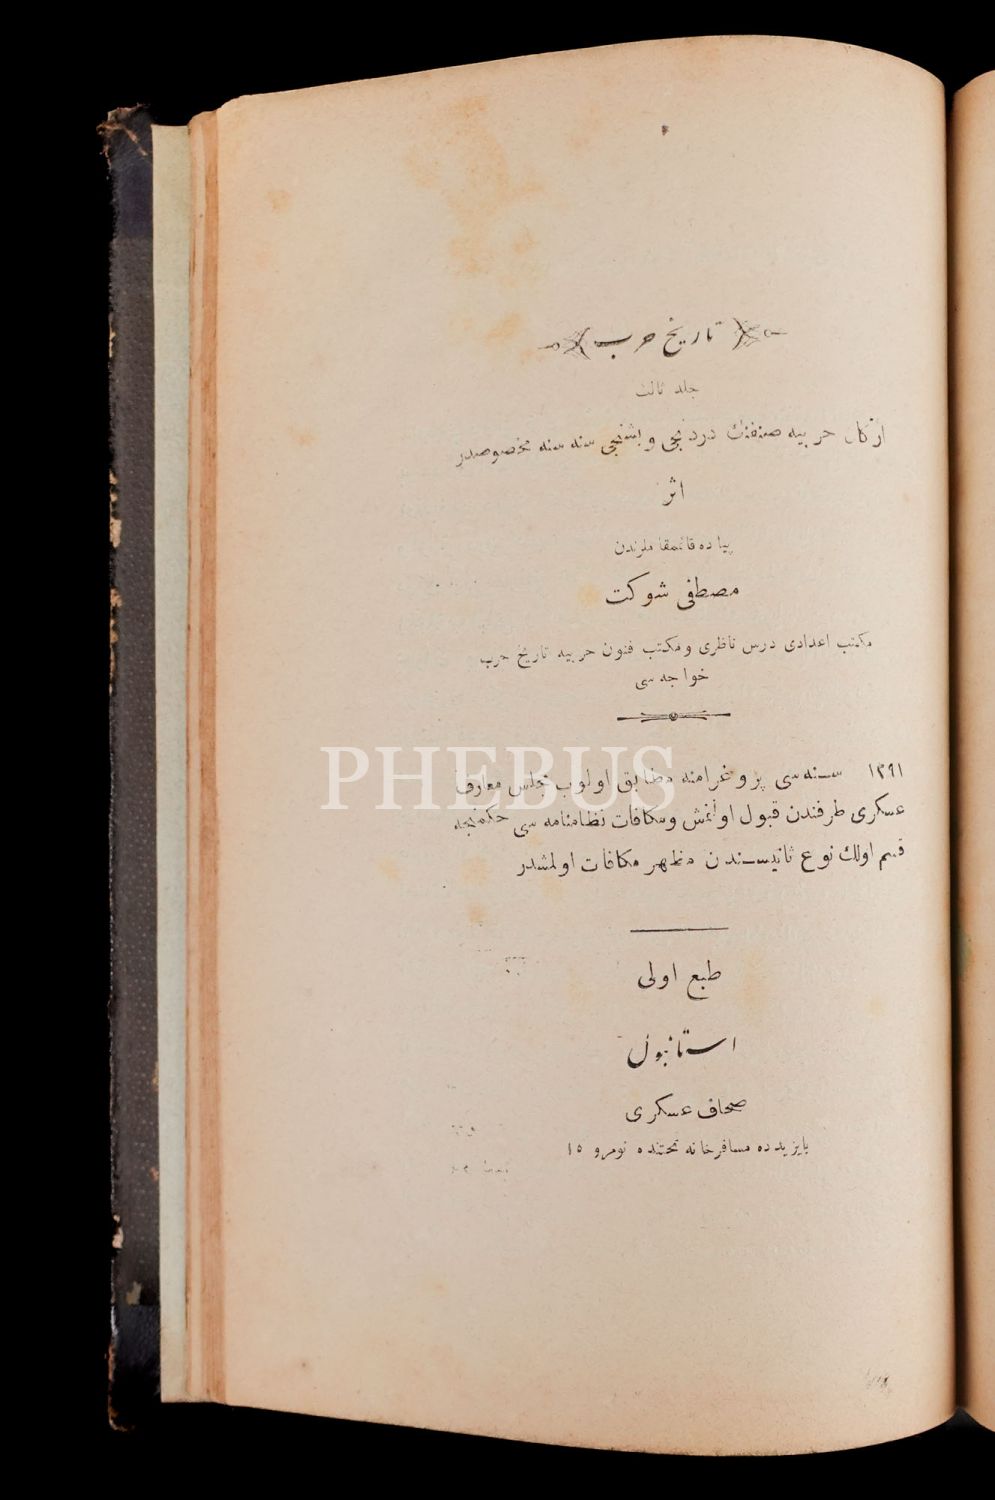 تاریخ حرب
جلد ثالث
ارکان حربیه صنفنك دردنجی و بشنجی سنه سنه مخصوصدر
اثر
پیاده قائمقاملرندن
مصطفی شوکت
مکتب اعدادی درس ناظری ومکتب فنون حربیه تاریخ حرب
خواجه سی
سنه سی پروغرامنه مطابق اولوب مجلس معارف
عسکری طرفندن قبول اولنمش ومکافات نظامنامه سی حکمنجه
قسم اولك نوع ثانیسندن مظهر مکافات اولمشدر
طبع اولی
استانبول
صحاف عسکری
بایزیدده مسافرخانه تحتنده نومرو ١٥
PHEBUS